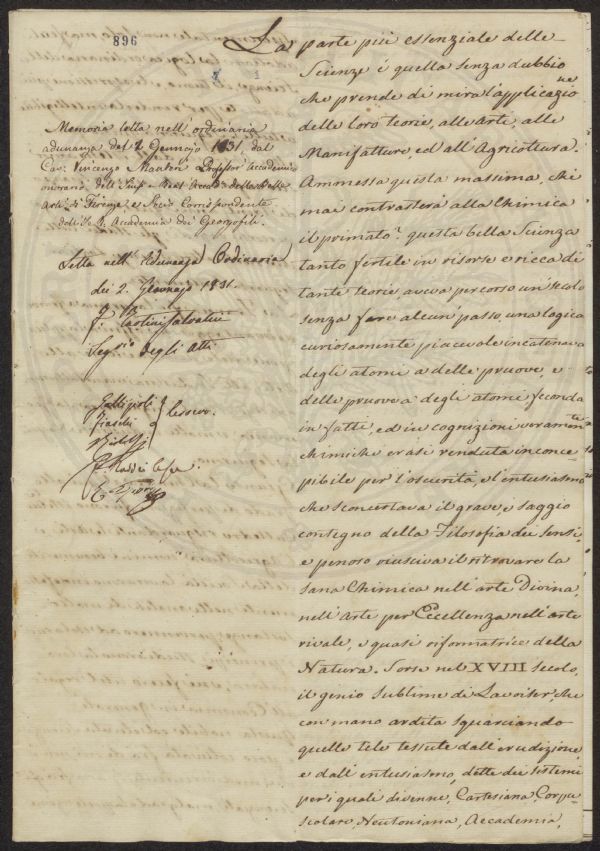 896
1
Memoria letta nell'ordinaria
adunanza del 2 Gennajo 1831. dal
Cav. Vincenzo Manteri Professor Accademico
onorario dell' Imp. e Real Accad. delle Belle
Arti di Firenze e Socio Corrispondente
dell' I. R. Accademia dei Georgofili.
Letta nell' Adunanza Ordinaria
dei 2. Gennajo 1831.
Seg.rio degli Atti
La parte più essenziale delle
Scienze è quella senza dubbio
che prende di mira l'applicazione
delle loro teorie, alle Arte, alle
Manifatture, ed all'Agricoltura.
Ammessa questa massima, chi
mai contrasterà alla Chimica
il primato? questa bella Scienza
tanto fertile in risorse e ricca di
tante teorie, aveva percorso un secolo
senza fare alcun passo, una logica
curiosamente piacevole incatenava
degli atomi a delle pruove, e
delle pruove a degli atomi feconda
in fatti, ed in cognizioni veramente
chimiche erasi renduta inconce
pibile per l'oscurità, e l'entusiasmo
che sconcertava il grave, e saggio
contegno della Filosofia dei sensi,
e penoso riusciva il ritrovare la
sana Chimica nell'arte Divina,
nell'Arte per Eccellenza nell'arte
rivale, e quasi riformatrice della
Natura. Sorse nel XVIII secolo,
il genio sublime di Lavoiser, che
con mano ardita squarciando
quelle tele tessute dall'erudizione,
e dall'entusiasmo, dette dei sistemi
per i quali divenne, Cartesiana, Corpu
scolare, Newtoniana, Accademia,